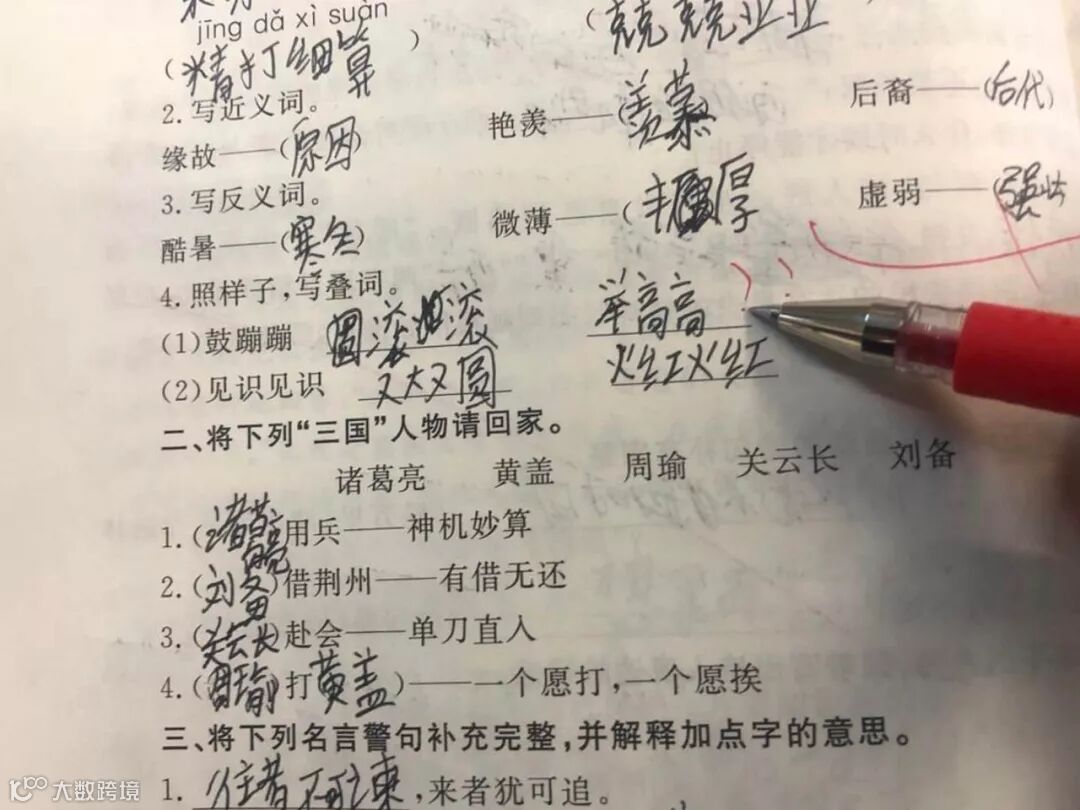 jīng dǎ xì suàn
(精打细算) (兢兢业业
2.写近义词。
缘故——(原因) 艳羡——(羡慕) 后裔——(后代)
3.写反义词。
酷暑——(寒冬) 微薄——(丰厚 虚弱——(强壮
4.照样子,写叠词。
(1)鼓蹦蹦 圆滚滚 举高高
(2)见识见识 又大又圆 火红火红
二、将下列“三国”人物请回家。
诸葛亮 黄盖 周瑜 关云长 刘备
1.(诸葛亮 用兵——神机妙算
2.(刘备)借荆州——有借无还
3.(关云长)赴会——单刀直入
4.(周瑜)打(黄盖)——一个愿打,一个愿挨
三、将下列名言警句补充完整,并解释加点字的意思。
1. 往者 ,来者犹可追。
大数跨境